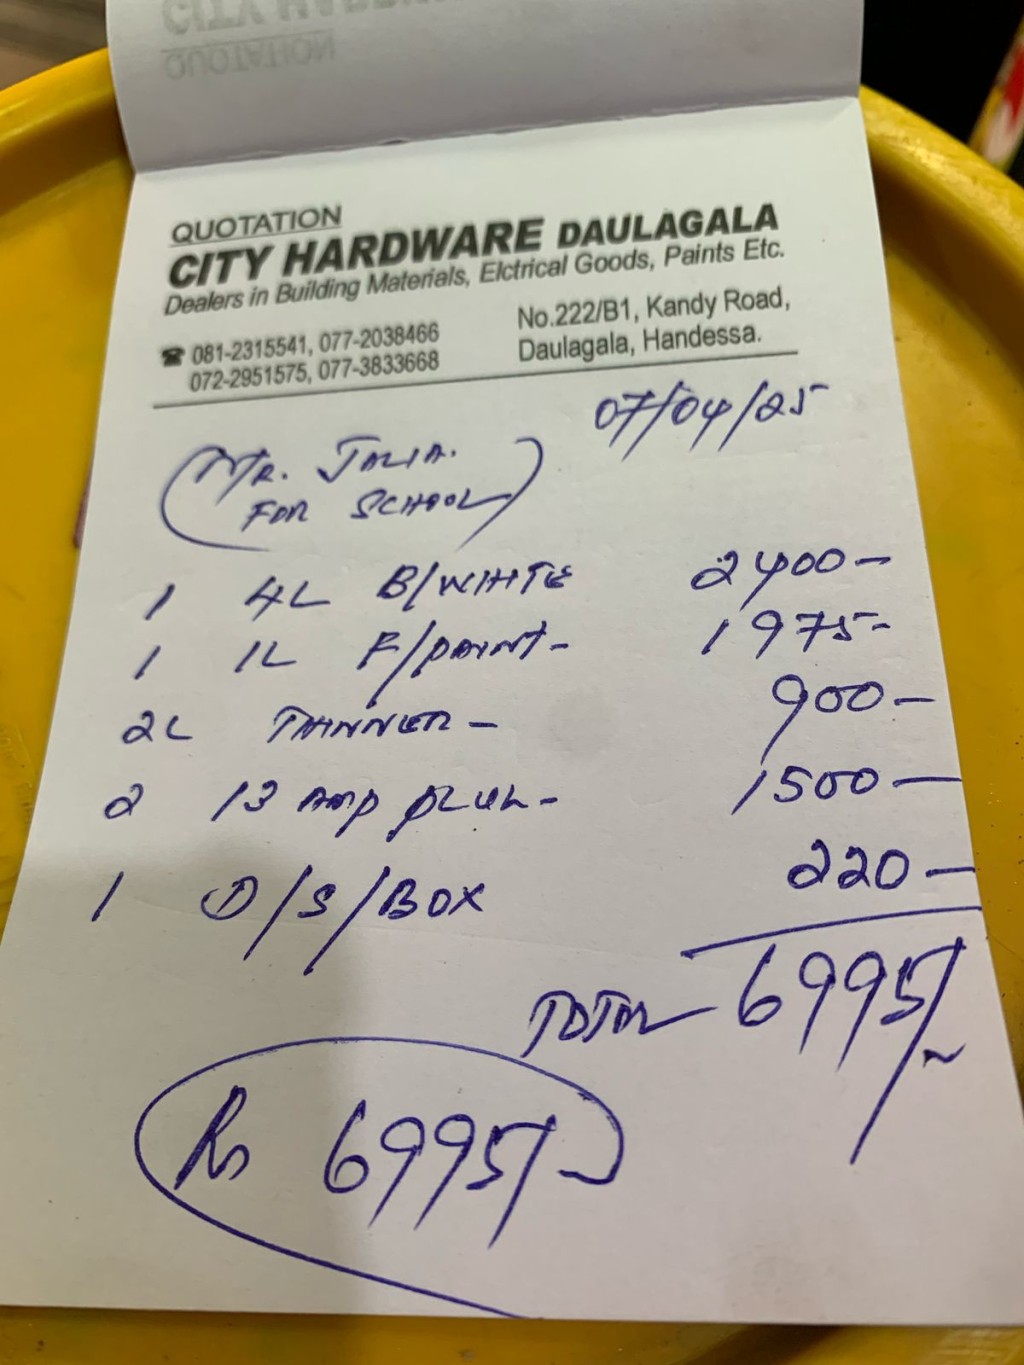 QUOTATION
CITY HARDWARE DAULAGALA
Dealers in Building Materials, Elctrical Goods, Paints Etc.
☎ 081-2315541, 077-2038466
072-2951575, 077-3833668
No.222/B1, Kandy Road,
Daulagala, Handessa.
07/04/25
(MR. JALIA.
FOR SCHOOL)
1 4L B/WHITE 2400-
1 1L F/PAINT- 1975-
2L THINNER - 900-
2 13 AMP PLUG- 1500-
1 D/S/BOX 220-
TOTAL 6995/~
Rs 6995/~